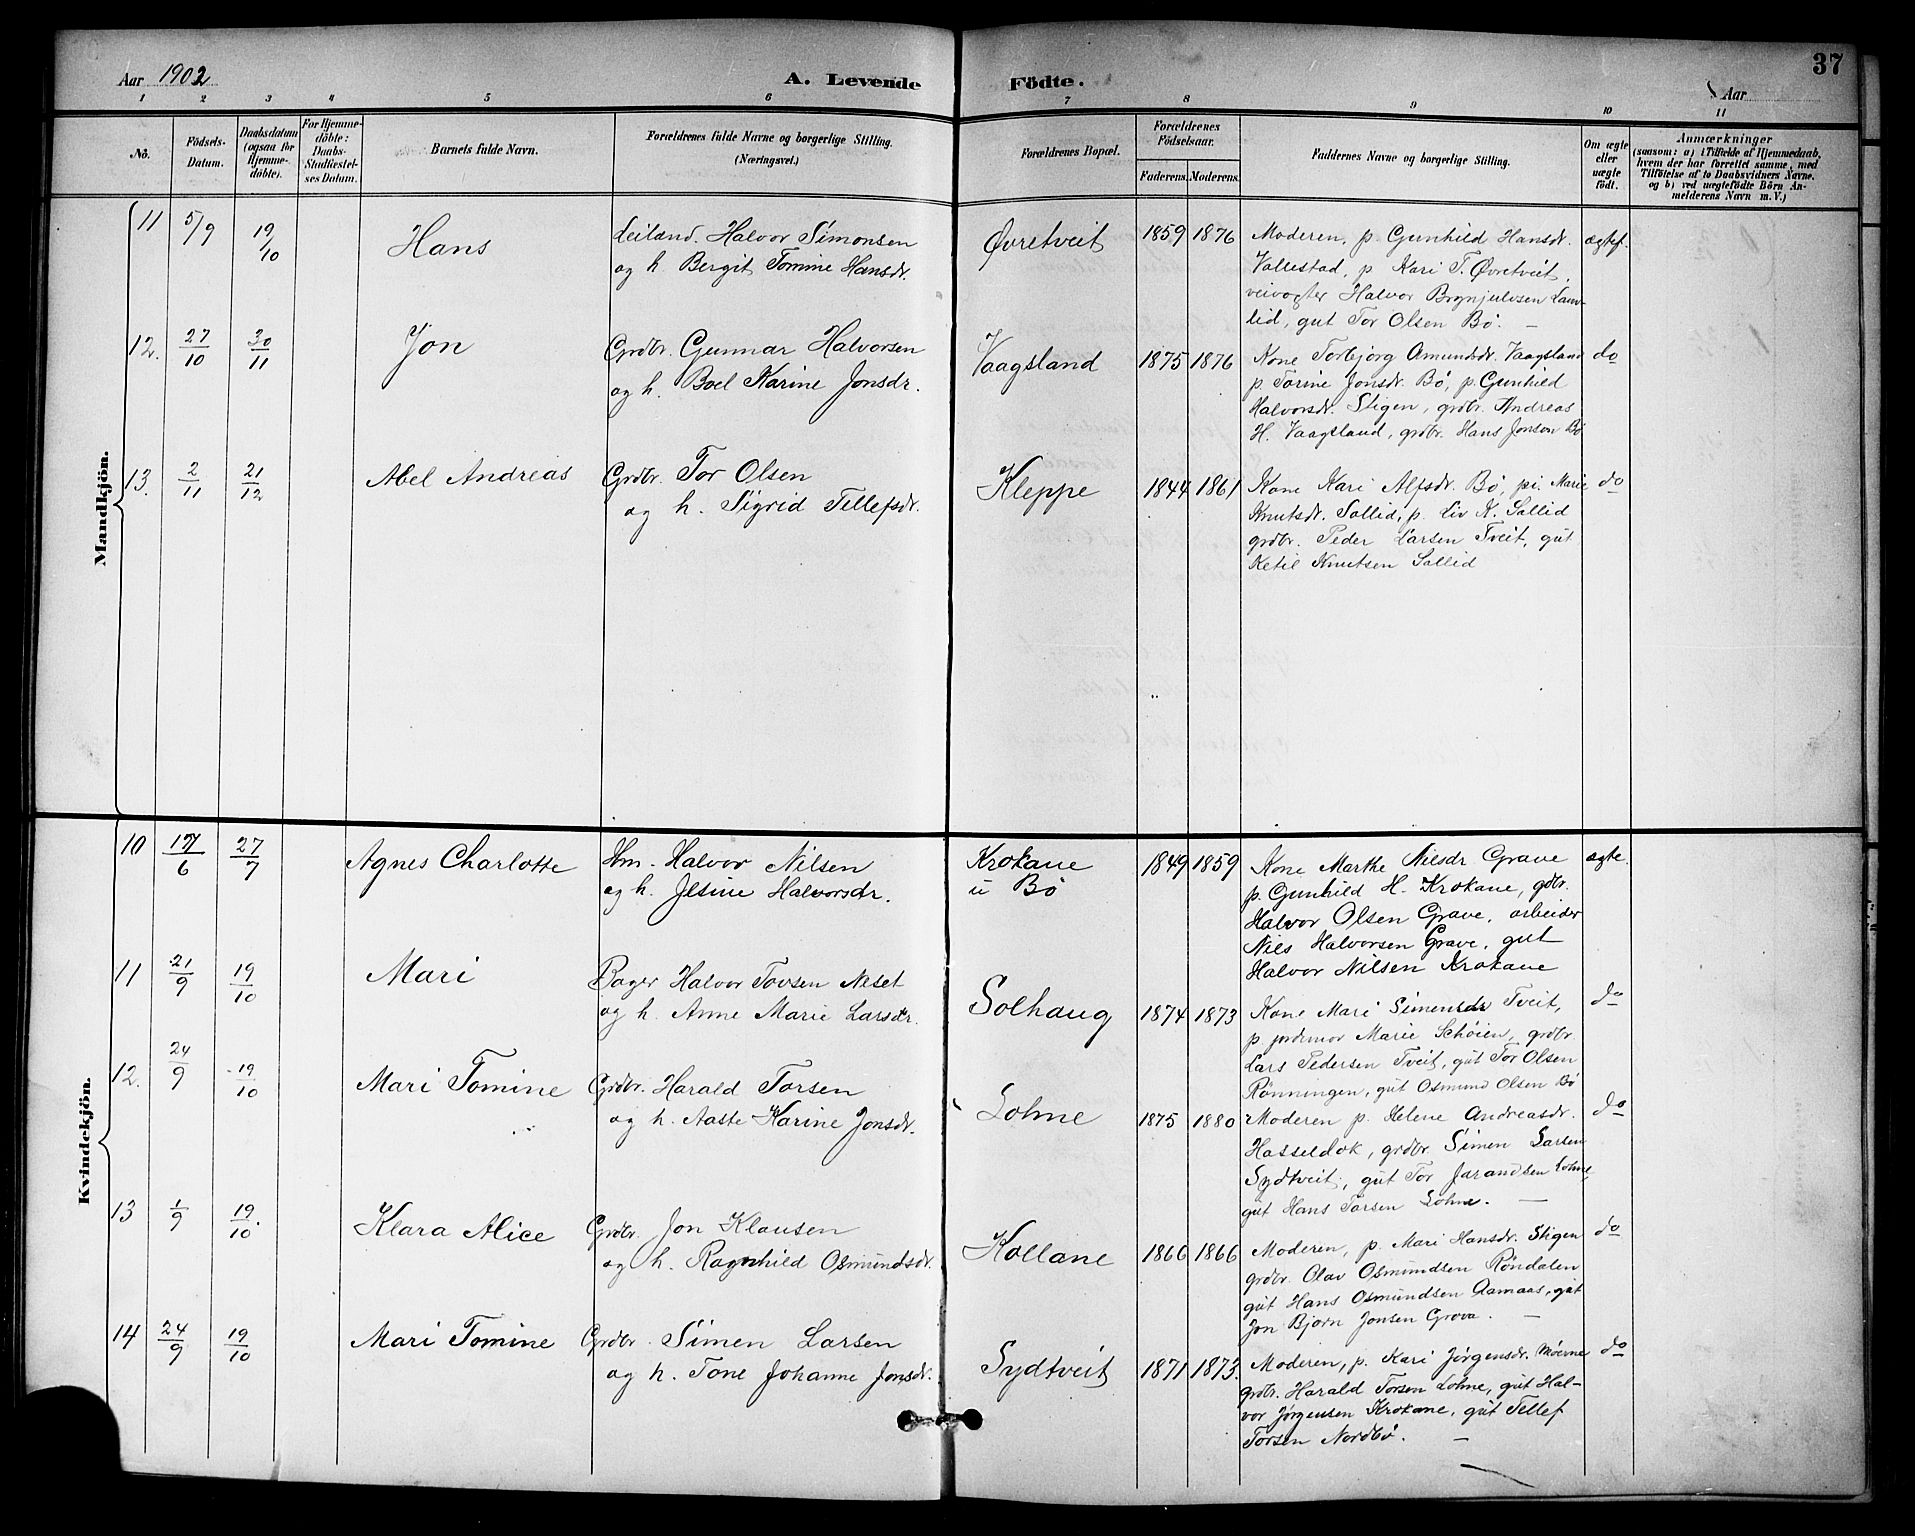 Aar 1902
A. Levende Födte.
Aar
37
1 2 3 4 5 6 7 8 9 10 11
No.
Födsels-
Datum.
Daabsdatum
(ogsaa for
Hjemme-
döbte).
For Hjemme-
döbte:
Daabs-
Stadfæstel-
ses Datum.
Barnets fulde Navn.
Forældrenes fulde Navne og borgerlige Stilling.
(Næringsvei.)
Forældrenes Bopæl.
Forældrenes
Födselsaar.
Faderens. Moderens.
Faddernes Navne og borgerlige Stilling.
Om ægte
eller
uægte
födt.
Anmærkninger
(saasom: a) i Tilfælde af Hjemmedaab,
hvem der har forrettet samme, med
Tilföielse af to Daabsvidners Navne,
og b) ved uægtefödte Börn An-
melderens Navn m. V.)
Mandkjön.
11 5/9 19/10 Hans
Leiland. Halvor Simonsen
og h. Bergit Tomine Hansdr.
Øvretveit 1859 1876
Moderen, p. Gunhild Hansdr. ægtef.
Vallestad, p. Kari T. Øvretveit,
veivogter Halvor Brynjulvsen Lauv-
lid, gut Tor Olsen Bø. —
12. 27/10 30/11 Jon
Grdbr. Gunnar Halvorsen
og h. Boel Karine Jonsdr.
Vaagsland 1875 1876
Kone Torbjørg Amundsdr. Vaagsland do
p Torine Jonsdr. Bø, p. Gunhild
Halvorsdr. Stigen, grdbr. Andreas
H. Vaagsland, grdbr. Hans Jonson Bø
13. 2/11 21/12 Abel Andreas
Grdbr. Tor Olsen
og h. Sigrid Tellefsdr.
Kleppe 1844 1861
Kone Kari Alfsdr. Bø, pi. Marie do
Knutsdr. Sollid, p. Liv K. Sollid
grdbr. Peder Larsen Tveit, gut
Ketil Knutsen Sollid
Kvindekjön.
10 17/6 27/7 Agnes Charlotte
Hm. Halvor Nilsen
og h. Jesine Halvorsdr.
Krokane
u Bø
1849 1859
Kone Marthe Nilsdr Grave ægte.
p. Gunhild H. Krokane, gdbr.
Halvor Olsen Grave, arbeider
Nils Halvorsen Grave, gut
Halvor Nilsen Krokane
11 21/9 19/10 Mari
Bager Halvor Tovsen Neset
og h. Anne Marie Larsdr.
Solhaug 1874 1873
Kone Mari Simensdr Tveit, do
p. jordmor Marie Schøien, grdbr.
Lars Pedersen Tveit, gut Tor Olsen
Rønningen, gut Osmund Olsen Bø
12. 24/9 19/10 Mari Tomine
Grdbr. Harald Torsen
og h. Aaste Karine Jonsdr.
Lohne 1875 1880
Moderen p. Helene Andreasdr. do
Hasseldok, grdbr. Simen Larsen
Sydtveit, gut Tor Jarandsen Lohne,
gut Hans Torsen Lohne. —
13 1/9 19/10. Klara Alice
Grdbr. Jon Klausen
og h. Ragnhild Osmundsdr.
Kollane 1866 1866
Moderen, p. Mari Hansdr. Stigen do
grdbr. Olav Osmundsen Røndalen
gut Hans Osmundsen Aamaas, gut
Jon Bjørn Jonsen Grova. —
14 24/9 19/10 Mari Tomine
Grdbr. Simen Larsen
og h. Tone Johanne Jonsdr.
Sydtveit 1871 1873.
Moderen, p. Kari Jørgensdr. Moierne do
grdbr. Harald Torsen Lohne, gut Hal-
vor Jørgensen Krokane, gut Tellef
Torsen Nordbø. —